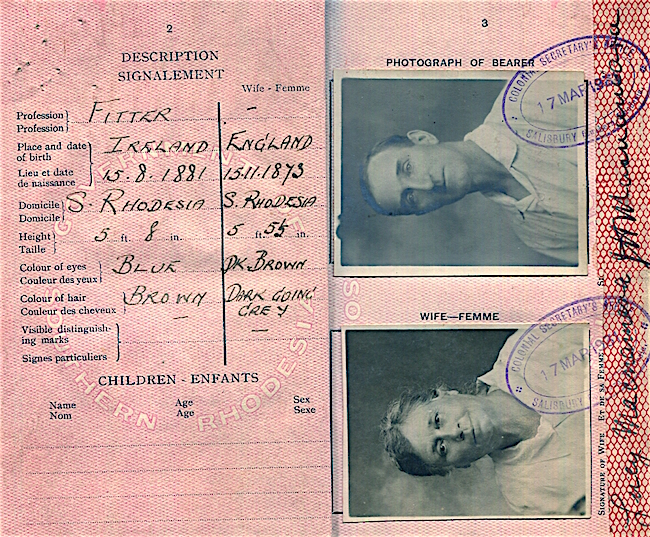 2
DESCRIPTION
SIGNALEMENT
Wife - Femme
Profession
Profession
FITTER
-
Place and date of birth
IRELAND
ENGLAND
Lieu et date de naissance
15.8.1881
15.11.1873
Domicile
Domicile
S. RHODESIA
S. RHODESIA
Height
Taille
5 ft. 8 in.
5 ft. 5½ in.
Colour of eyes
Couleur des yeux
BLUE
DK. BROWN
Colour of hair
Couleur des cheveux
BROWN
DARK GOING GREY
Visible distinguish-
ing marks
-
-
Signes particuliers
CHILDREN - ENFANTS
Name
Nom
Age
Age
Sex
Sexe
HERN RHODESIA
3
PHOTOGRAPH OF BEARER
COLONIAL SECRETARY'S
17 MAR
SALISBURY
WIFE—FEMME
COLONIAL SECRETARY'S
17 MAR
SALISBURY
SIGNATURE OF WIFE ET DE SA FEMME
Lucy